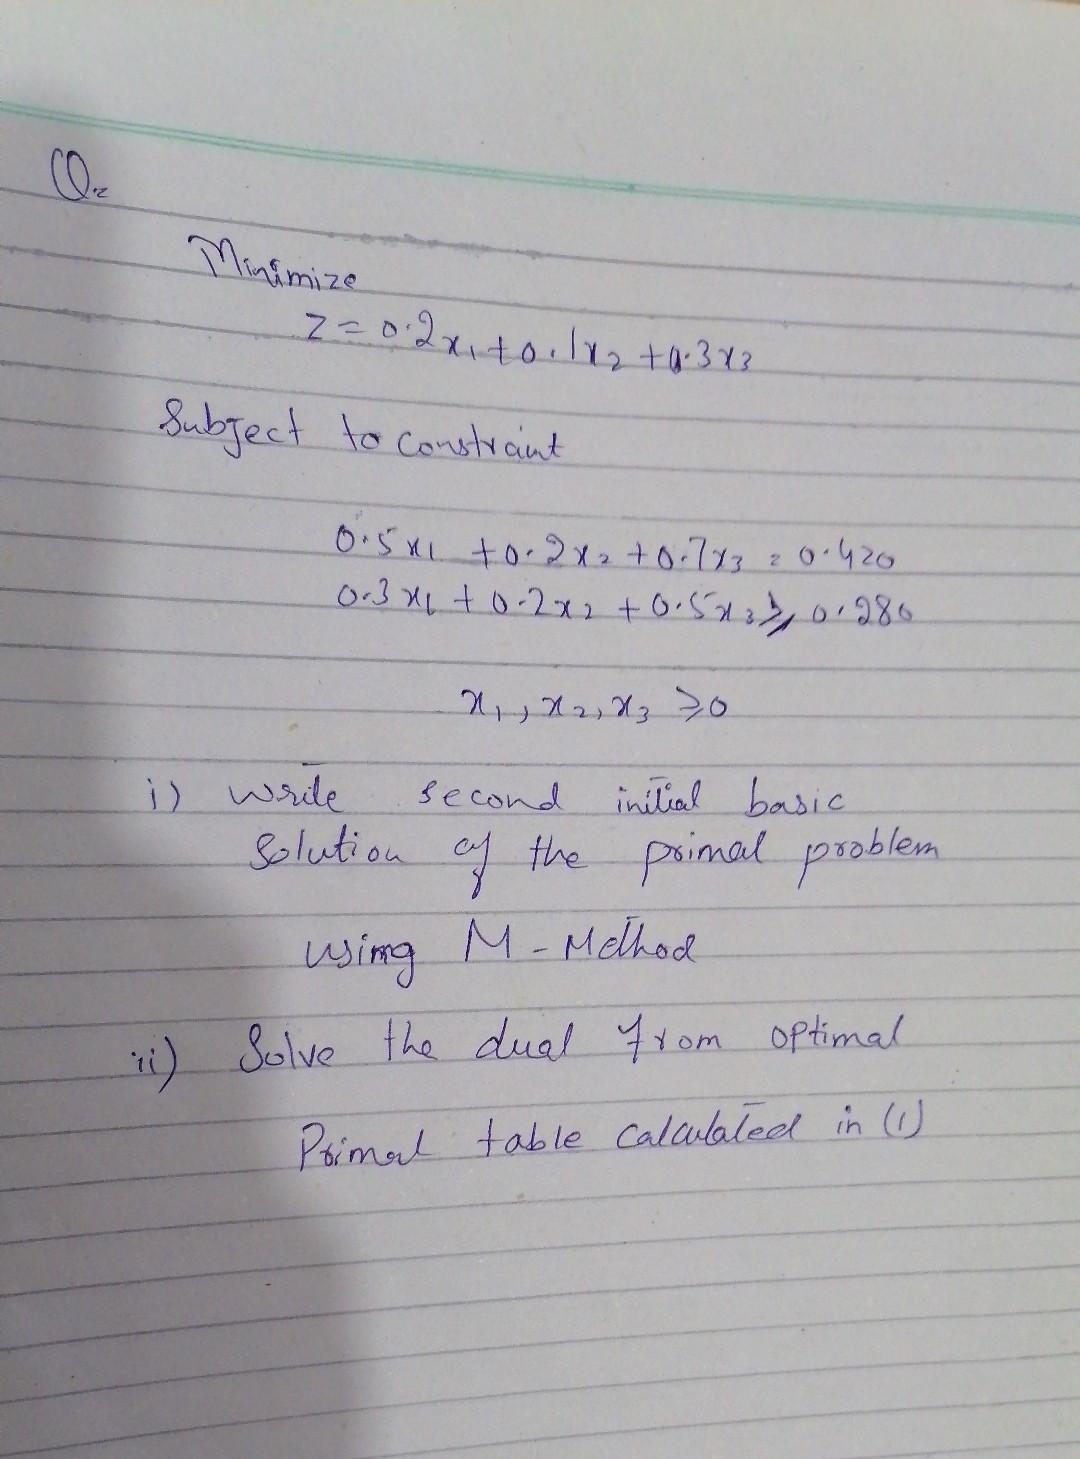 Q2
Minimize
Z = 0.2x₁ + 0.1x₂ + 0.3x₃
Subject to constraint
0.5x₁ + 0.2x₂ + 0.7x₃ = 0.420
0.3x₁ + 0.2x₂ + 0.5x₃ ≥ 0.280
x₁, x₂, x₃ ≥ 0
i) write second initial basic
Solution of the primal problem
using M-Method
ii) Solve the dual from optimal
Primal table calculated in (1)